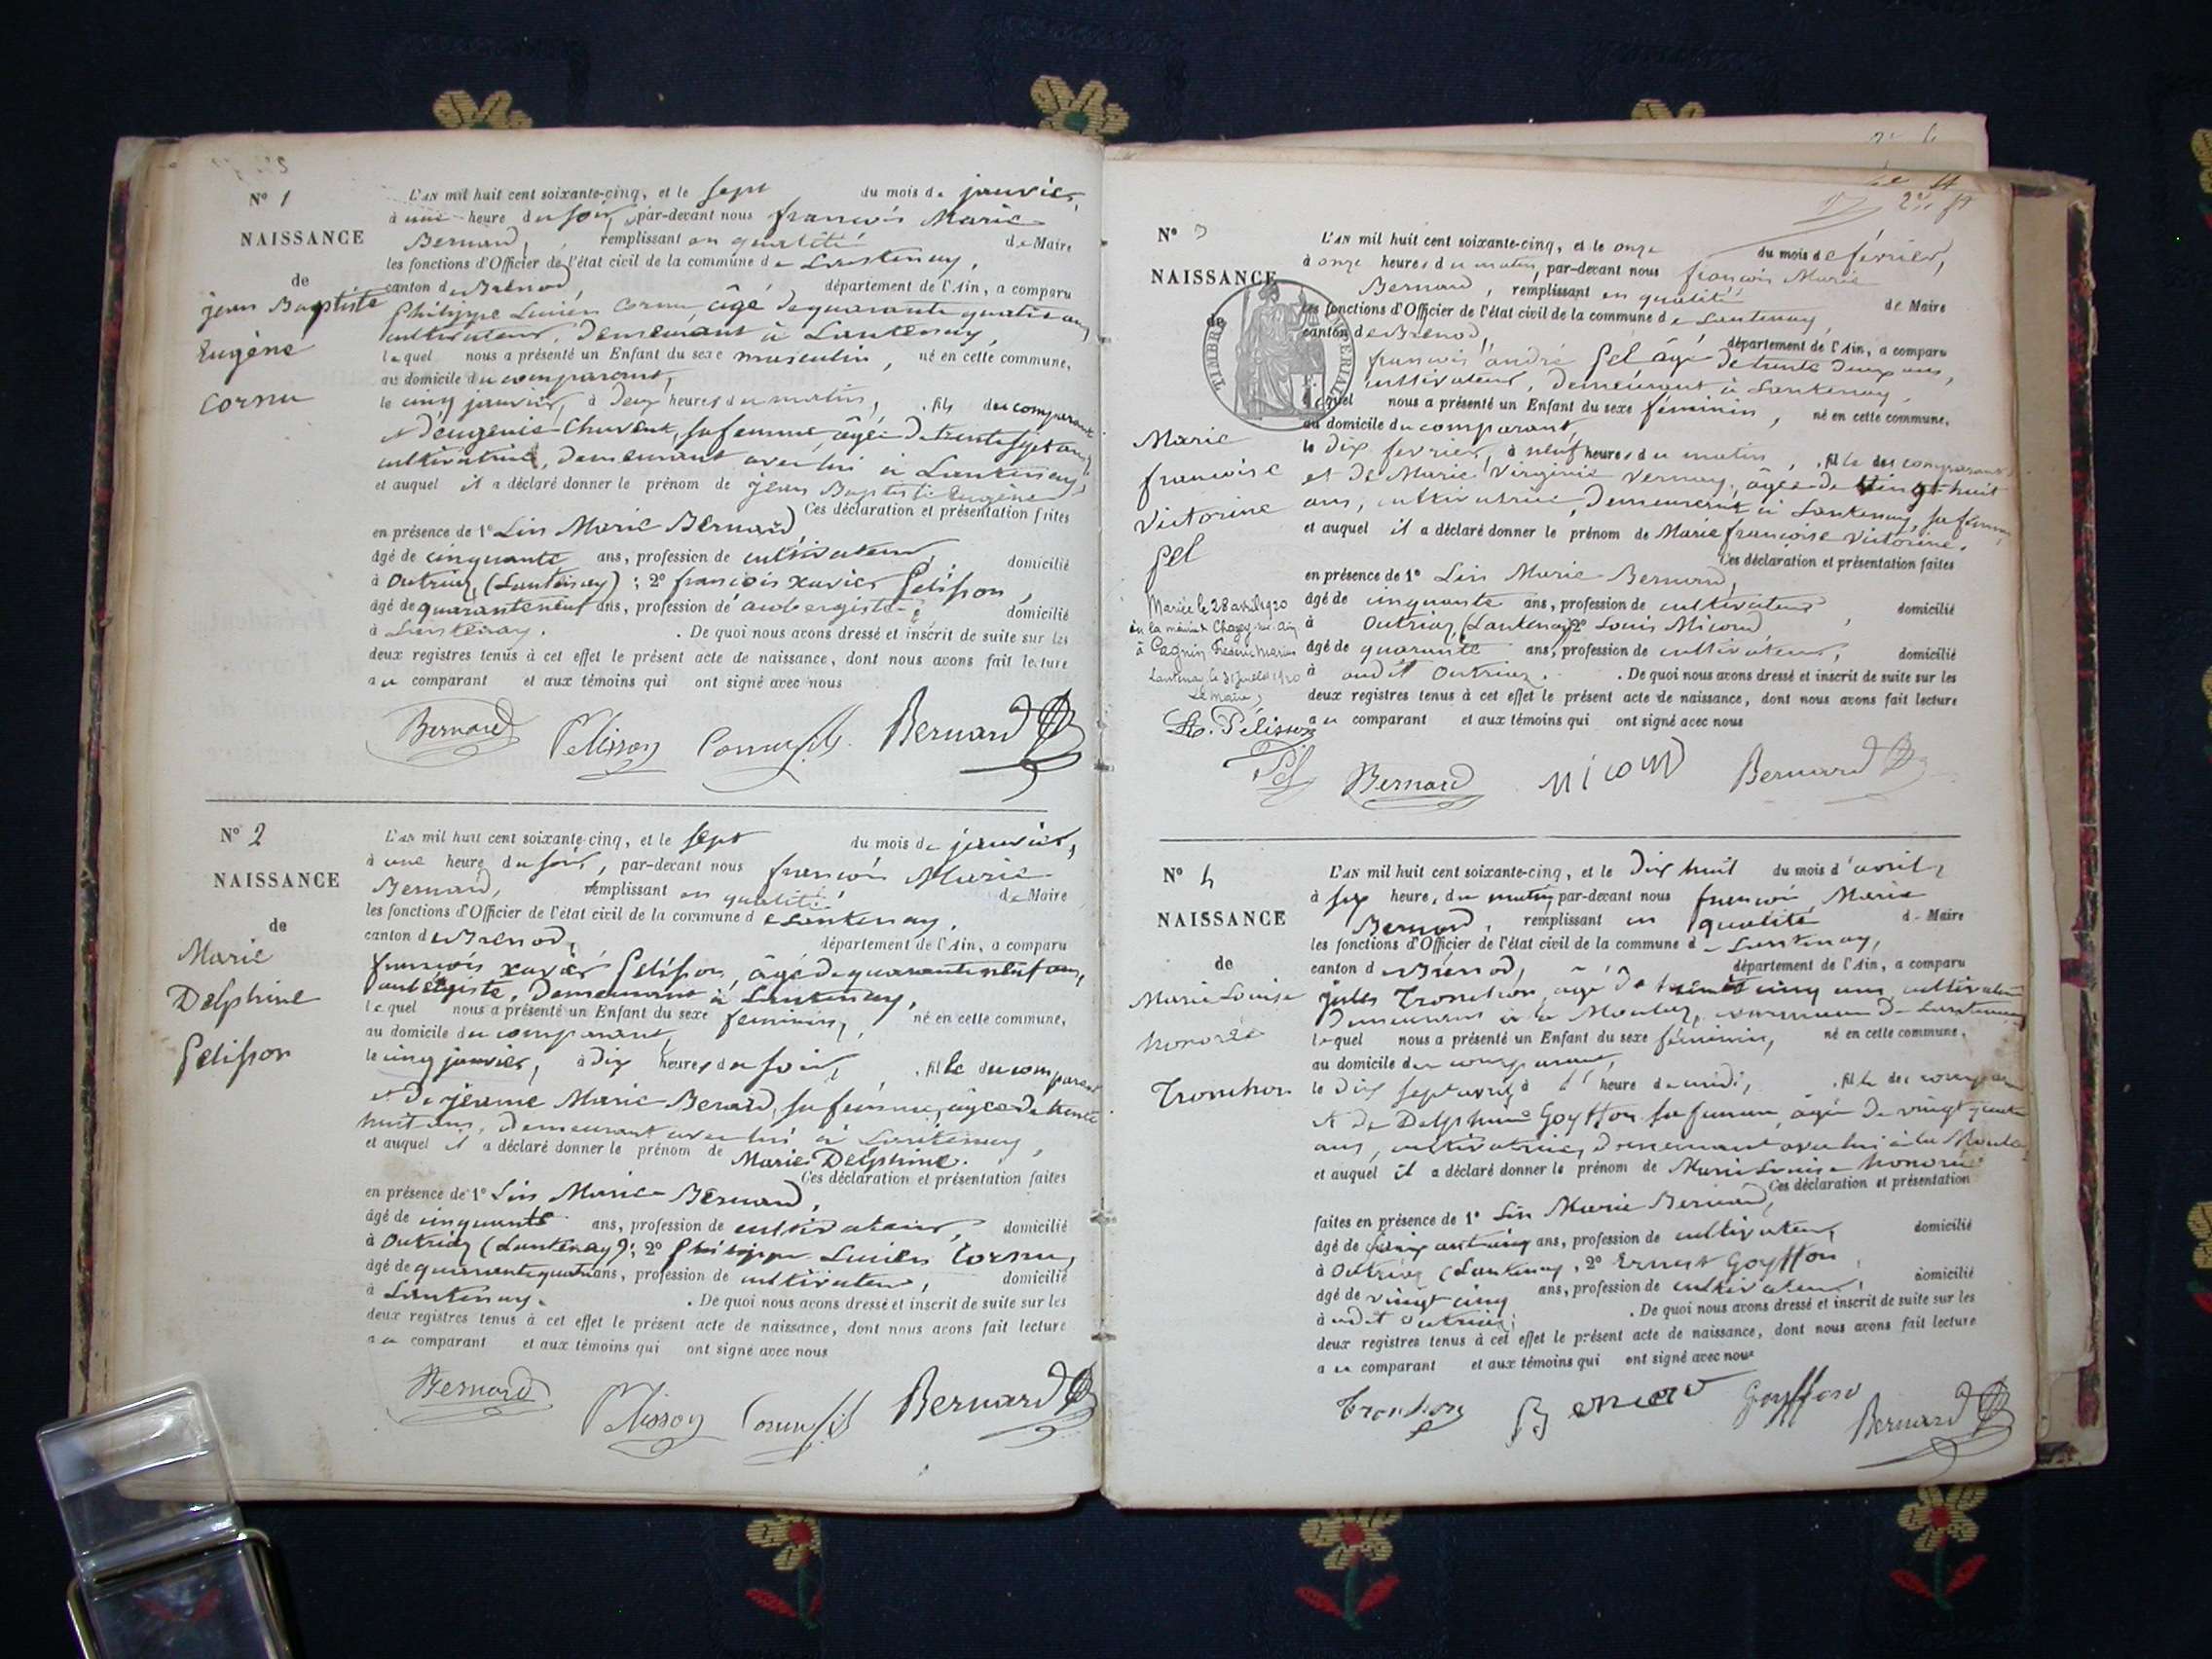 N° 1
NAISSANCE
de
jean Baptiste
Eugène
Cornu
L'AN mil huit cent soixante-cinq, et le sept du mois de janvier,
à une heure du soir, par-devant nous françois Marie
Bernard, remplissant en qualité de Maire
les fonctions d'Officier de l'état civil de la commune de Lantenay,
canton de Brénod, département de l'Ain, a comparu
Philippe Lucien Cornu, âgé de quarante quatre ans,
cultivateur, demeurant à Lantenay,
lequel nous a présenté un Enfant du sexe masculin, né en cette commune,
au domicile du comparant,
le cinq janvier, à deux heures du matin, fils du comparant
et d'eugénie Chavent, sa femme, âgée de trente sept ans,
cultivatrice, demeurant avec lui à Lantenay,
et auquel il a déclaré donner le prénom de jean Baptiste Eugène
Ces déclaration et présentation faites
en présence de 1° Lin Marie Bernard,
âgé de cinquante ans, profession de cultivateur, domicilié
à Outriaz, (Lantenay) ; 2° françois xavier Pélisson,
âgé de quarante neuf ans, profession d'aubergiste, domicilié
à Lantenay. . De quoi nous avons dressé et inscrit de suite sur les
deux registres tenus à cet effet le présent acte de naissance, dont nous avons fait lecture
au comparant et aux témoins qui ont signé avec nous
Bernard Pelisson Cornu fils. Bernard
N° 2
NAISSANCE
de
Marie
Delphine
Pelisson
L'AN mil huit cent soixante-cinq, et le sept du mois de janvier,
à une heure du soir, par-devant nous françois Marie
Bernard, remplissant en qualité de Maire
les fonctions d'Officier de l'état civil de la commune de Lantenay,
canton de Brénod, département de l'Ain, a comparu
françois xavier Pélisson, âgé de quarante neuf ans,
aubergiste, demeurant à Lantenay,
lequel nous a présenté un Enfant du sexe féminin, né en cette commune,
au domicile du comparant,
le cinq janvier, à dix heures du soir, fille du comparant
et de jeanne Marie Berard, sa femme, âgée de trente
huit ans, demeurant avec lui à Lantenay,
et auquel il a déclaré donner le prénom de Marie Delphine.
Ces déclaration et présentation faites
en présence de 1° Lin Marie Bernard,
âgé de cinquante ans, profession de cultivateur, domicilié
à Outriaz (Lantenay) ; 2° Philippe Lucien Cornu,
âgé de quarante quatre ans, profession de cultivateur, domicilié
à Lantenay. . De quoi nous avons dressé et inscrit de suite sur les
deux registres tenus à cet effet le présent acte de naissance, dont nous avons fait lecture
au comparant et aux témoins qui ont signé avec nous
Bernard Pelisson Cornu fils Bernard
N° 3
NAISSANCE
de
TIMBRE IMPERIAL
Marie
françoise
Victorine
Pel
Mariée le 28 avril 1920
en la mairie de Chazey-sur-Ain
à Cagnin
Lantenay, le 31 juillet 1920
Le Maire,
Pélisson
L'AN mil huit cent soixante-cinq, et le onze du mois de février,
à onze heures du matin, par-devant nous françois Marie
Bernard, remplissant en qualité de Maire
les fonctions d'Officier de l'état civil de la commune de Lantenay,
canton de Brénod, département de l'Ain, a comparu
françois andré Pel âgé de trente deux ans,
cultivateur, demeurant à Lantenay,
lequel nous a présenté un Enfant du sexe féminin, né en cette commune,
au domicile du comparant,
le dix février, à neuf heures du matin, fille du comparant
et de Marie Virginie Vernay, âgée de vingt huit
ans, cultivatrice, demeurant à Lantenay, sa femme,
et auquel il a déclaré donner le prénom de Marie françoise Victorine.
Ces déclaration et présentation faites
en présence de 1° Lin Marie Bernard,
âgé de cinquante ans, profession de cultivateur, domicilié
à Outriaz, (Lantenay) 2° Louis Nicoud
âgé de quarante ans, profession de cultivateur, domicilié
à audit Outriaz. . De quoi nous avons dressé et inscrit de suite sur les
deux registres tenus à cet effet le présent acte de naissance, dont nous avons fait lecture
au comparant et aux témoins qui ont signé avec nous
Pel Bernard Nicoud Bernard
N° 4
NAISSANCE
de
Marie Louise
honorée
Tronchon
L'AN mil huit cent soixante-cinq, et le dix huit du mois d'avril,
à six heures du matin par-devant nous françois Marie
Bernard, remplissant en qualité de Maire
les fonctions d'Officier de l'état civil de la commune de Lantenay,
canton de Brénod, département de l'Ain, a comparu
jules Tronchon âgé de trente cinq ans cultivateur
demeurant à la commune de Lantenay
lequel nous a présenté un Enfant du sexe féminin, né en cette commune,
au domicile du comparant,
le dix sept avril à heure de midi, fille du comparant
et de Delphine Goyffon sa femme, âgée de vingt quatre
ans, cultivatrice, demeurant avec lui à la
et auquel il a déclaré donner le prénom de Marie Louise honorée
Ces déclaration et présentation
faites en présence de 1° Lin Marie Bernard,
âgé de ans, profession de cultivateur, domicilié
à Outriaz (Lantenay, 2° Ernest Goyffon
âgé de vingt cinq ans, profession de cultivateur, domicilié
à audit outriaz. . De quoi nous avons dressé et inscrit de suite sur les
deux registres tenus à cet effet le présent acte de naissance, dont nous avons fait lecture
au comparant et aux témoins qui ont signé avec nous
Tronchon Bernard Goyffon Bernard